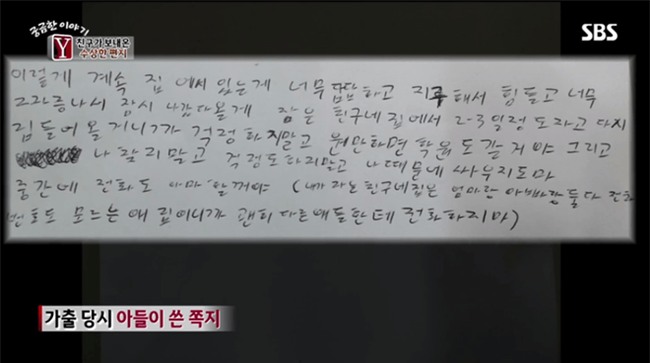 궁금한 이야기
Y 친구가 보내온
수상한 편지
SBS
이렇게 계속 집에서 있는게 너무 답답하고 지루해서 힘들고 너무
짜증나서 잠시 나갔다올게 잠은 친구네 집에서 2-3일정도자고 다시
집들어올거니까 걱정하지말고 원만하면 학원도 갈거야 그리고
나 찾지말고 걱정도하지말고 나때문에 싸우지도마
중간에 전화도 아마 할꺼야 (내가 자는친구네집은 엄마랑 아빠랑둘다 전화
번호도 모르는애 집이니까 괜히 다른애들한테 전화하지마)
가출 당시 아들이 쓴 쪽지